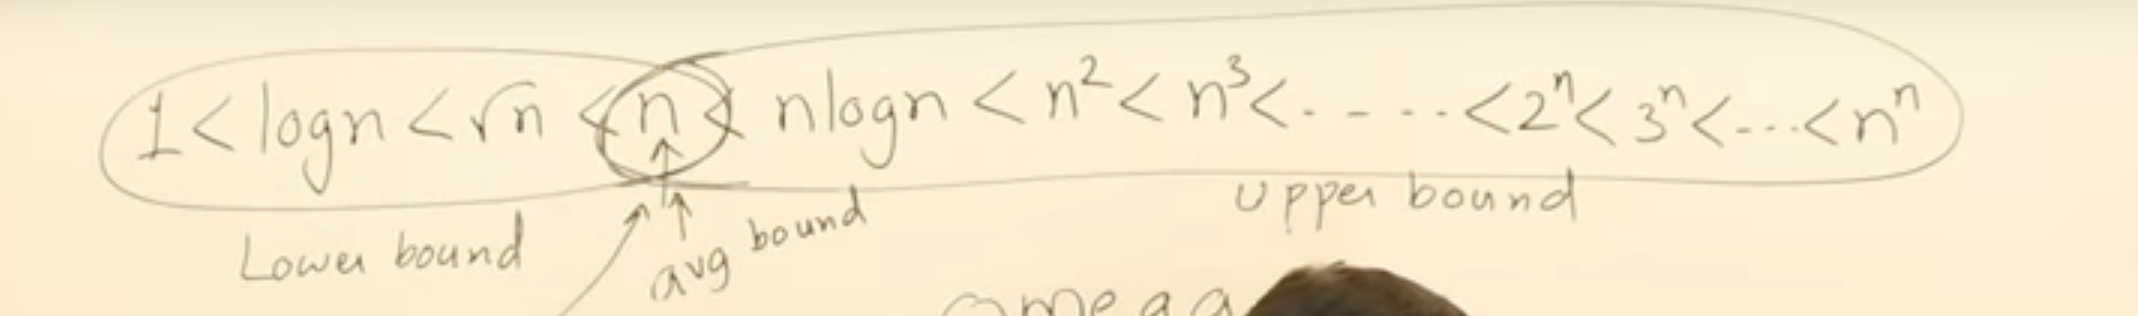 1 < logn < √n < n < nlogn < n² < n³ < - - - - - < 2ⁿ < 3ⁿ < - - - < nⁿ
Lower bound avg bound Upper bound
omega